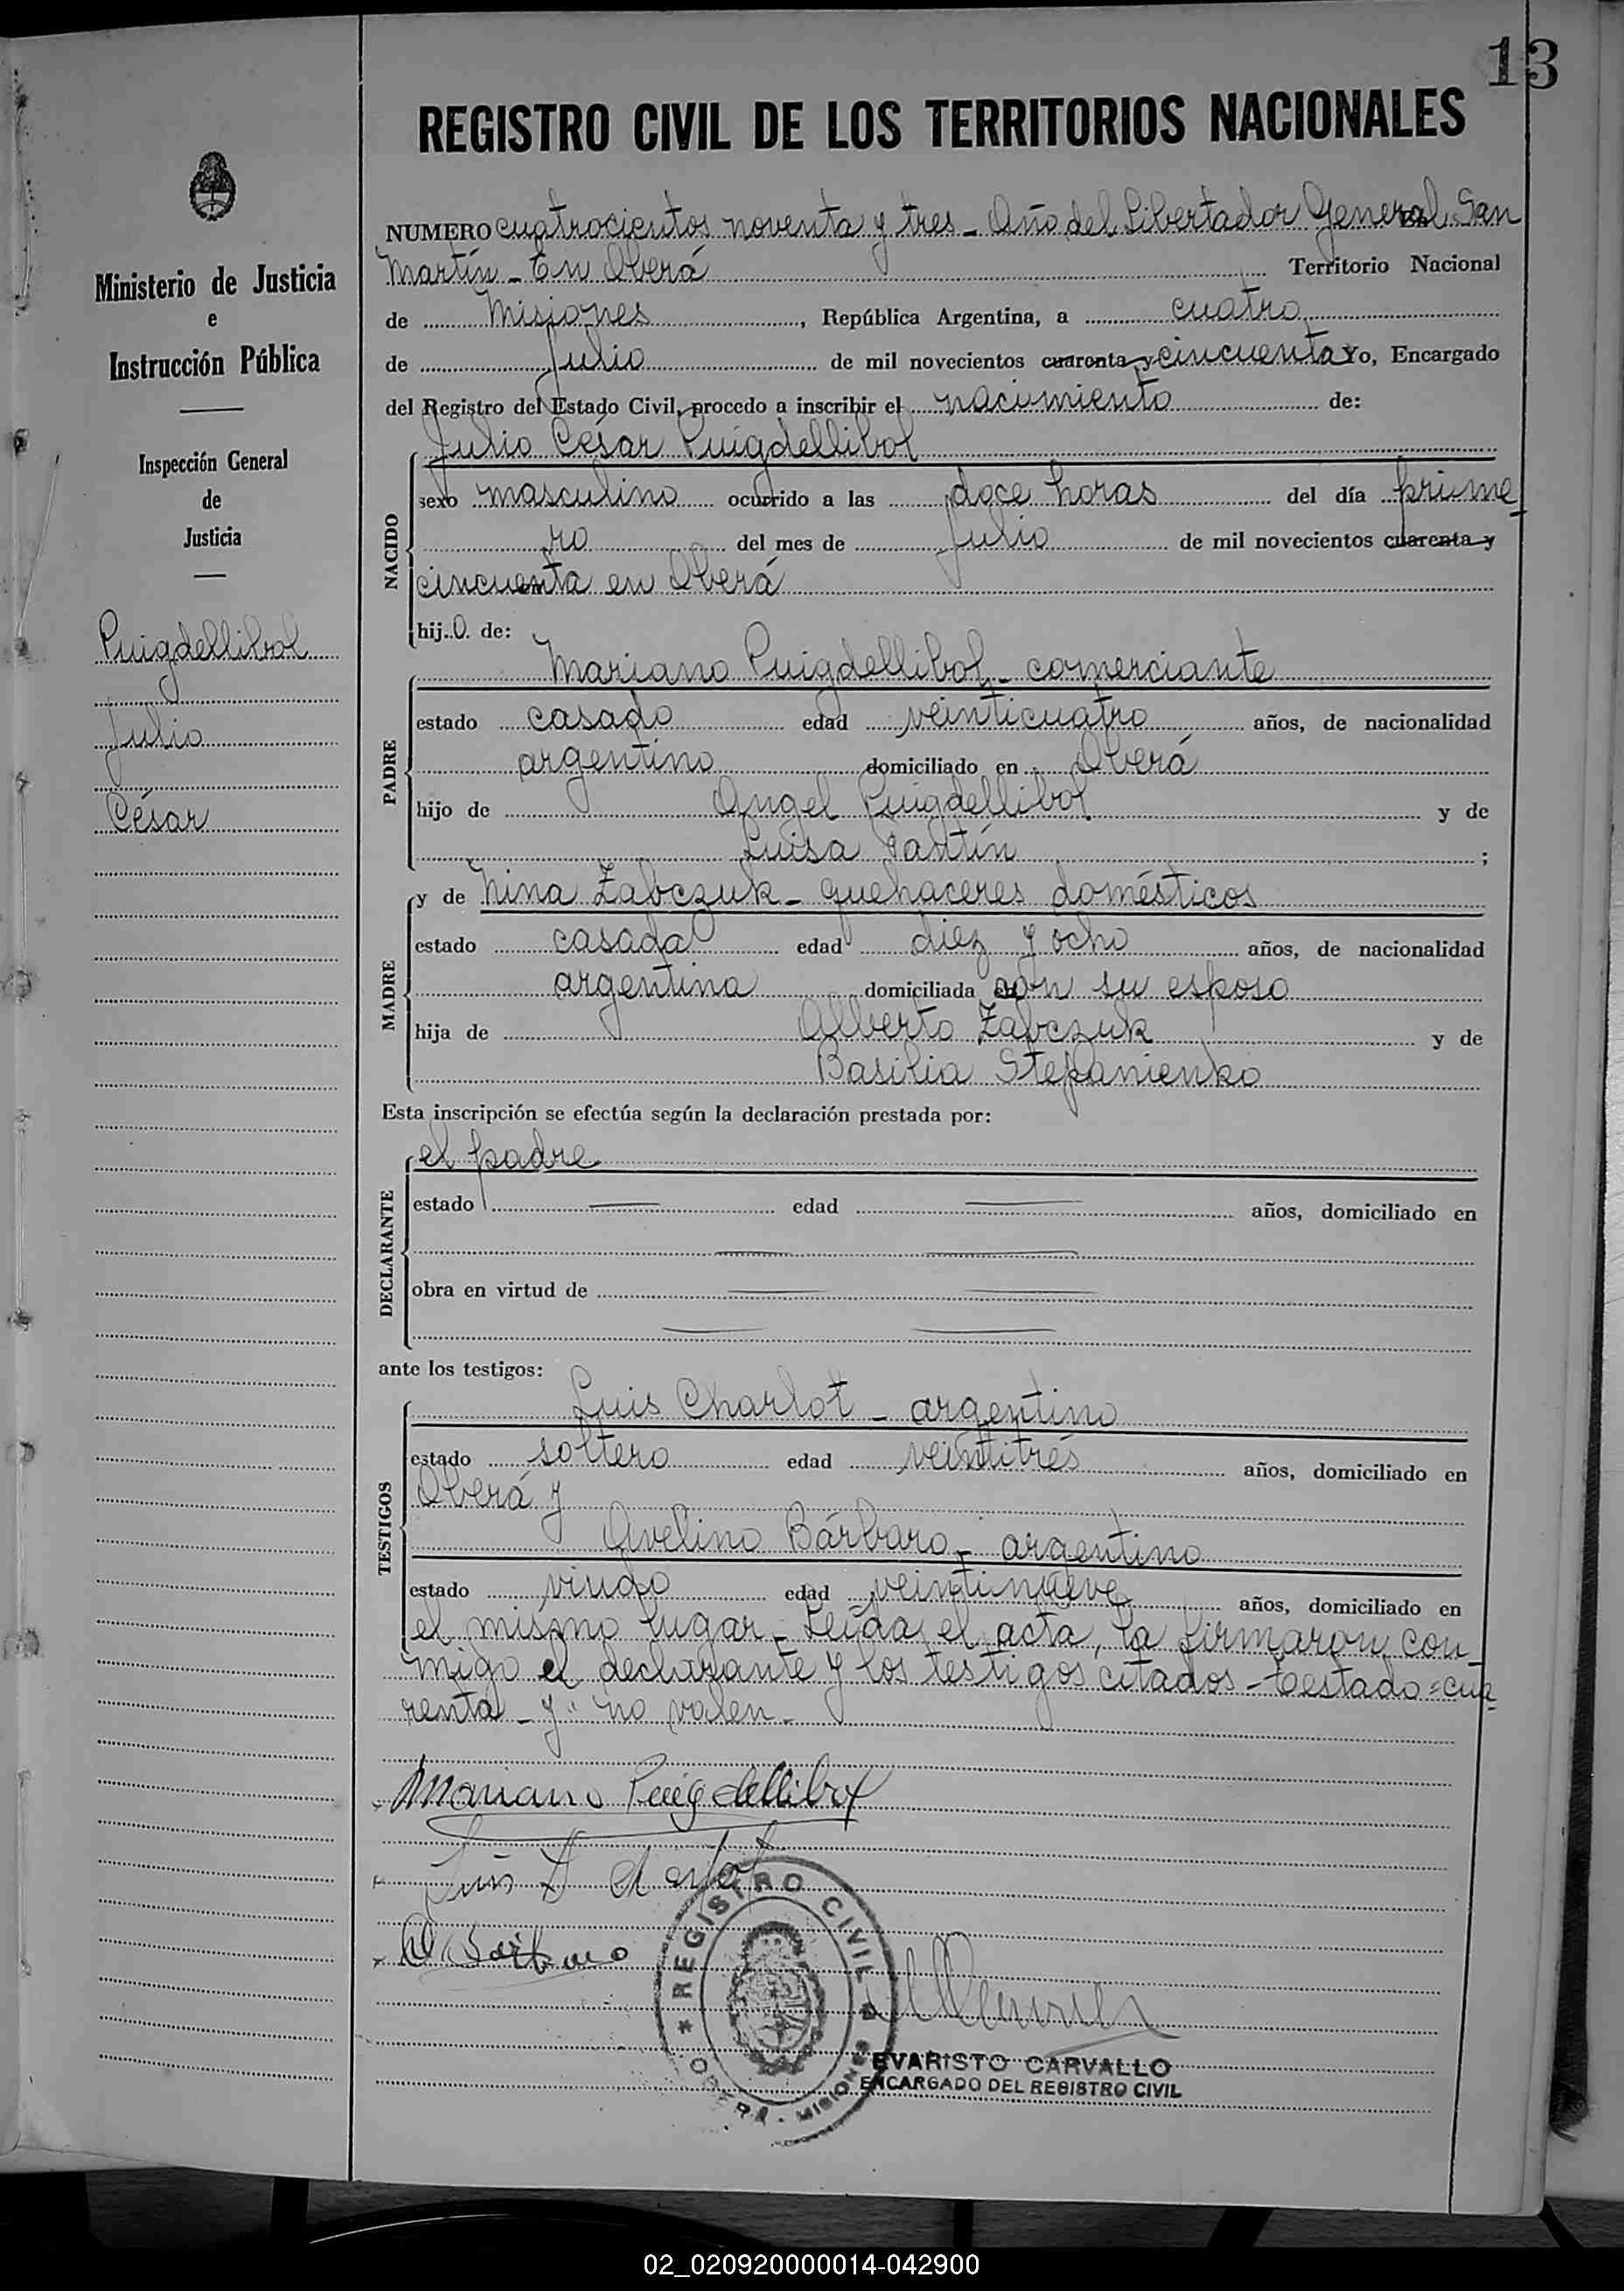 13
REGISTRO CIVIL DE LOS TERRITORIOS NACIONALES
Ministerio de Justicia
e
Instrucción Pública
Inspección General
de
Justicia
Puigdellibol
Julio
César
NUMERO cuatrocientos noventa y tres - Año del Libertador General San
Martín - En Oberá Territorio Nacional
de Misiones, República Argentina, a cuatro
de Julio de mil novecientos cuarenta y cincuenta Yo, Encargado
del Registro del Estado Civil, procedo a inscribir el nacimiento de:
Julio César Puigdellibol
NACIDO
sexo masculino ocurrido a las doce horas del día prime-
ro del mes de Julio de mil novecientos cuarenta y
cincuenta en Oberá
hijo de:
PADRE
Mariano Puigdellibol - comerciante
estado casado edad veinticuatro años, de nacionalidad
argentino domiciliado en Oberá
hijo de Angel Puigdellibol y de
Luisa Pantín ;
MADRE
y de Nina Zabczuk - quehaceres domésticos
estado casada edad diez y ocho años, de nacionalidad
argentina domiciliada con su esposo
hija de Alberto Zabczuk y de
Basilia Stepanienko
Esta inscripción se efectúa según la declaración prestada por:
DECLARANTE
el padre
estado — edad — años, domiciliado en
— —
obra en virtud de — —
— —
ante los testigos:
TESTIGOS
Luis Charlot - argentino
estado soltero edad veintitrés años, domiciliado en
Oberá y
Avelino Bárbaro - argentino
estado viudo edad veintinueve años, domiciliado en
el mismo lugar - Leída el acta, la firmaron con-
migo el declarante y los testigos citados - Testado = cua-
renta - y" no valen -
Mariano Puigdellibol
Luis
A Barbaro
REGISTRO CIVIL
OBERA - MISIONES
EVARISTO CARVALLO
ENCARGADO DEL REGISTRO CIVIL
02_020920000014-042900